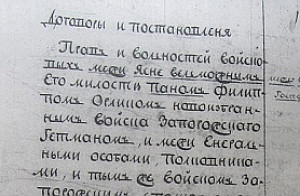 Договоры и постановленя
Правъ и волностей войско-
выхъ межи Ясне велможнымъ
Его милости Паномъ Филип-
помъ Орликомъ новоизбран-
нымъ войска Запорожскаго
Гетманомъ, и межи Енераль-
ными особами, Полковника-
ми, и тымъ же войскомъ За-